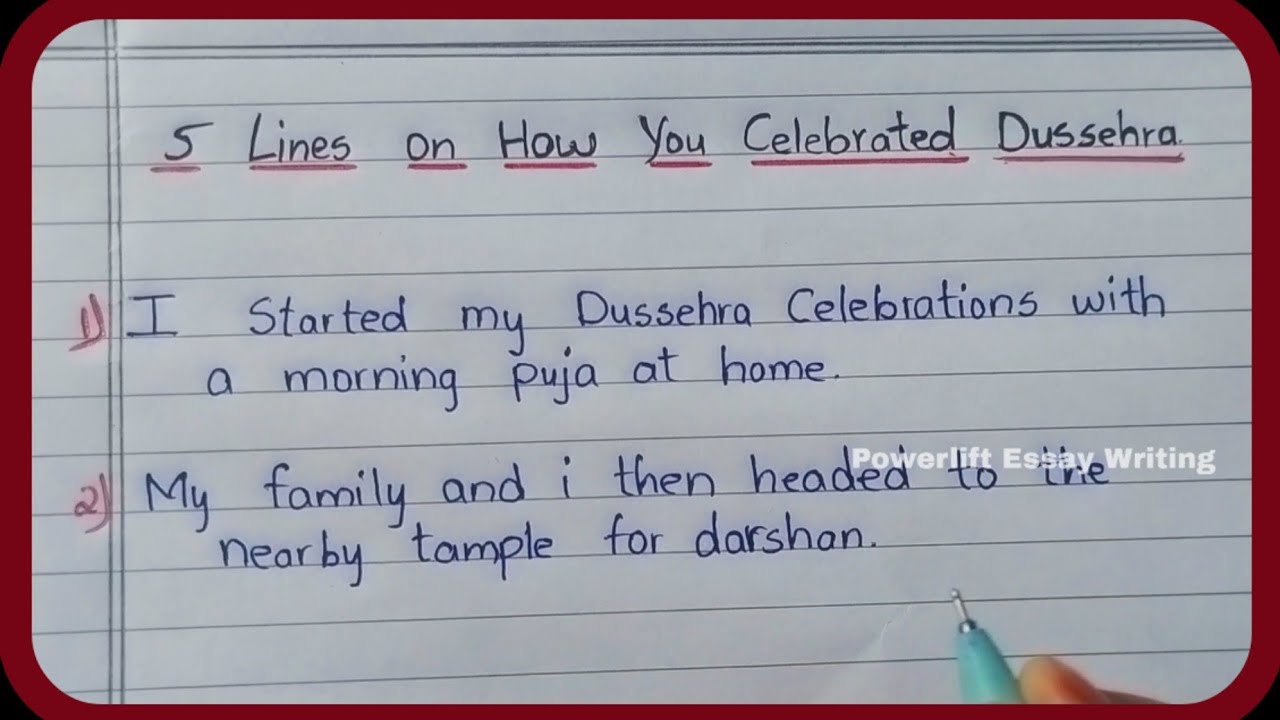 5 Lines on How You Celebrated Dussehra.
1) I Started my Dussehra Celebrations with
a morning puja at home.
Powerlift Essay Writing
2) My family and i then headed to the
nearby tample for darshan.